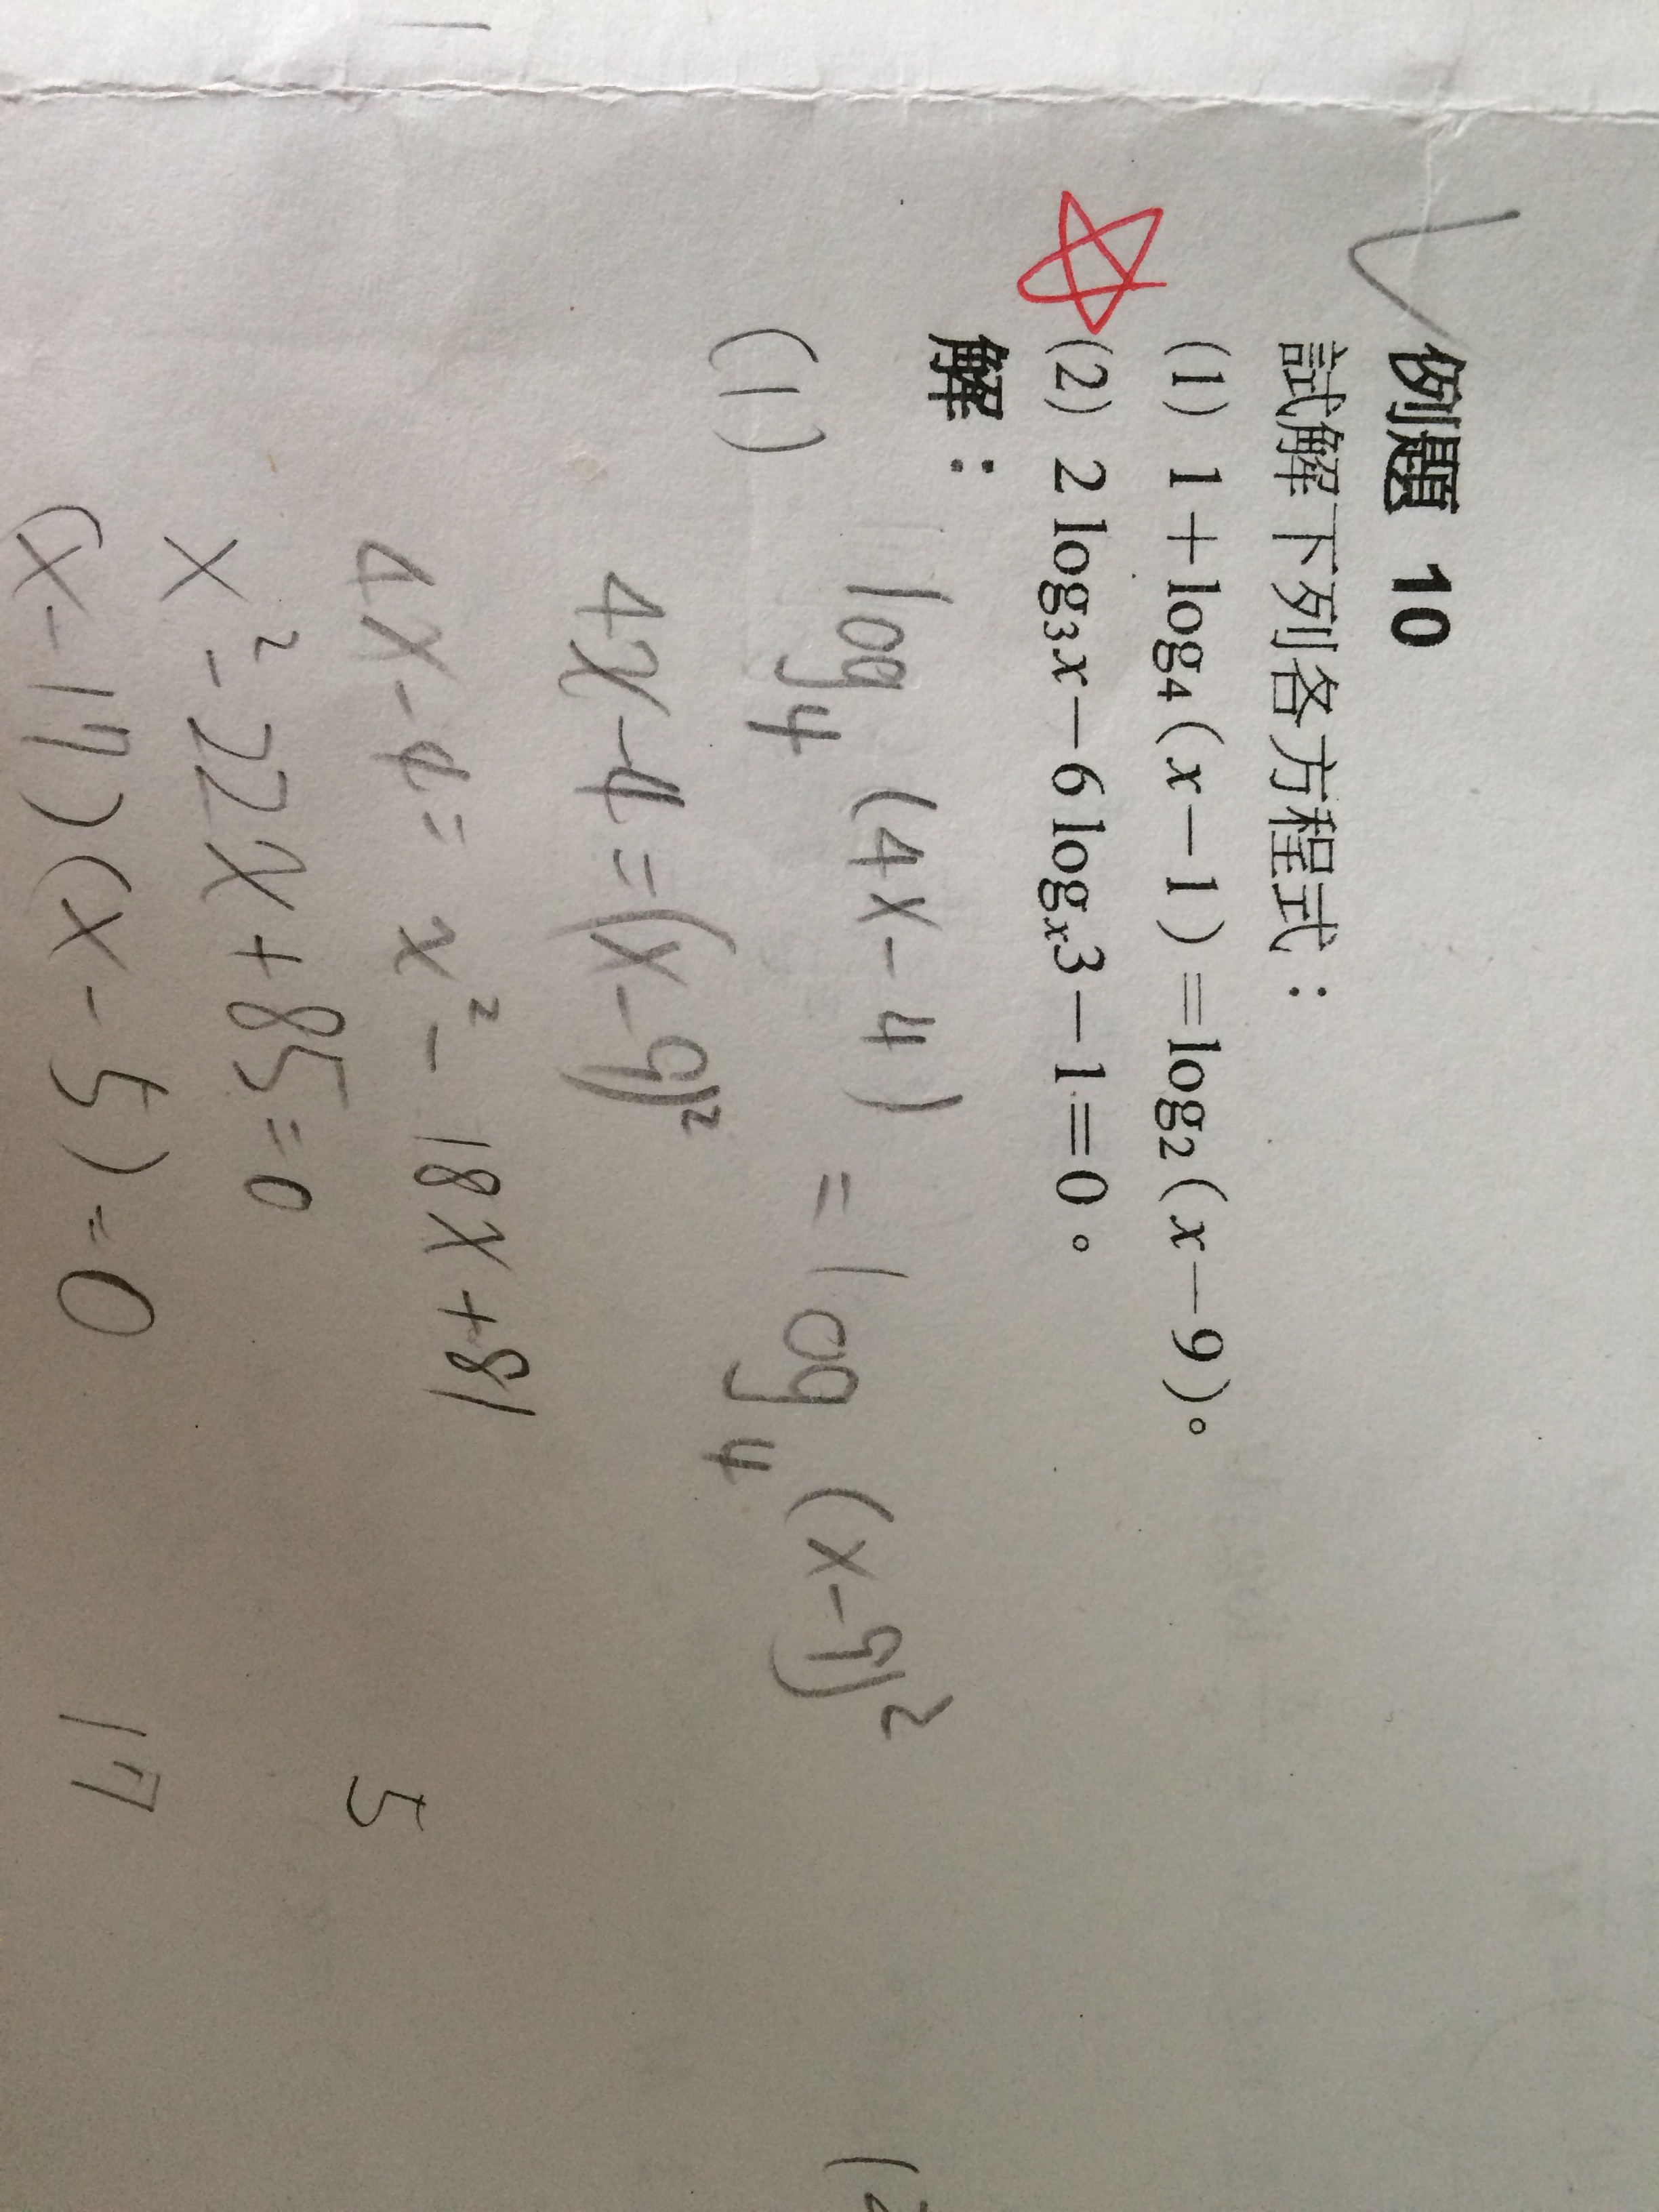 例題 10
試解下列各方程式：
(1) 1+log₄(x−1)=log₂(x−9)。
(2) 2log₃x−6logₓ3−1=0。
解：
(1) log₄ (4x-4) = log₄ (x-9)²
4x-4=(x-9)²
4x-4= x²- 18x+81
x²-22x+85=0
5
(x-17)(x-5)=0
17